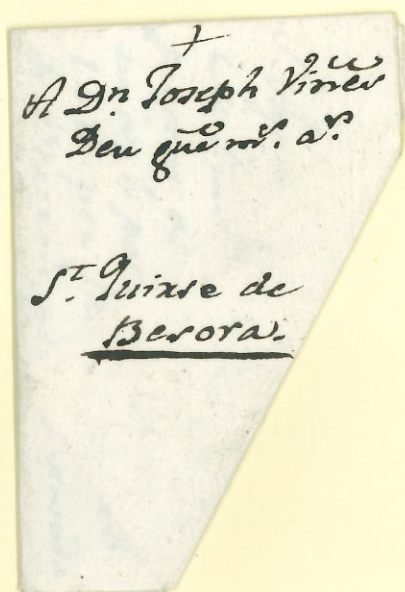 +
A Dn Joseph Viñes
Deu gûe ms. as.
St. Quirse de
Besora.